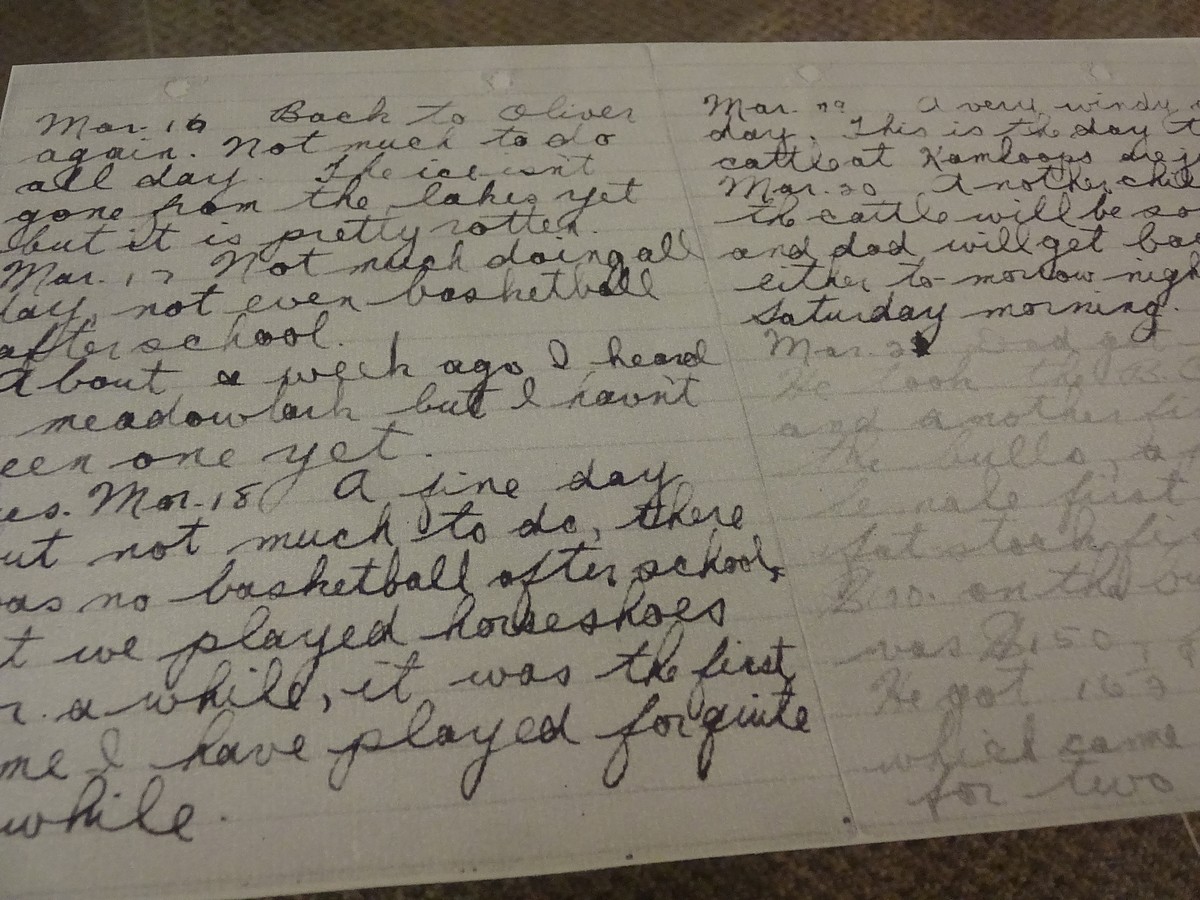 Mar. 16 Back to Oliver
again. Not much to do
all day. The ice isn't
gone from the lakes yet
but it is pretty rotten.
Mar. 17 Not much doing all
day, not even basketball
after school.
About a week ago I heard
meadowlark but I havn't
een one yet.
es. Mar. 18 A fine day
ut not much to do, there
as no basketball after school,
t we played horseshoes
r a while, it was the first
me I have played for quite
while.
Mar. A very windy
day. This is the day t
cattle at Kamloops are j
Mar. 20 Another chil
the cattle will be so
and dad will get bac
either to-morrow nigh
Saturday morning.
Mar. 21 Dad got
He took the
and another fi
the bulls, a
first
fat stock fi
on the
was $150,
He got
which came
for two